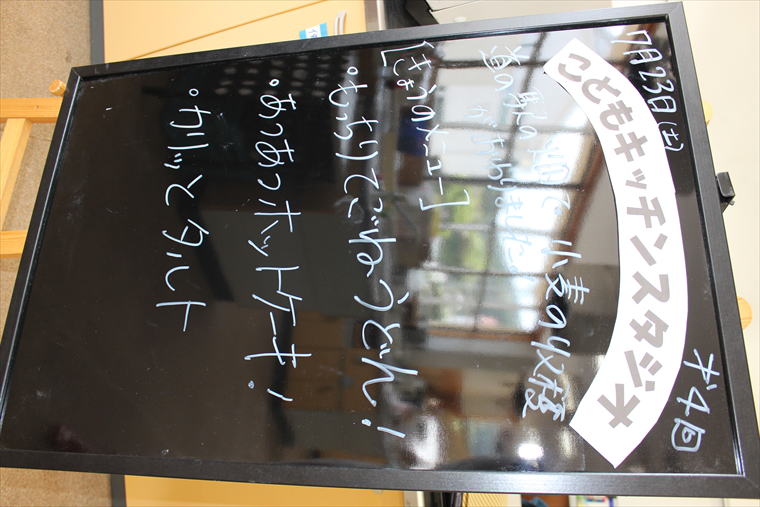 7月23日(土)
こどもキッチンスタジオ
第4回
道の駅の畑で 小麦の収穫
がおわりました。
[きょうのメニュー]
・もっちりてごねうどん!
・あつあつホットケーキ!
・カリッとタルト